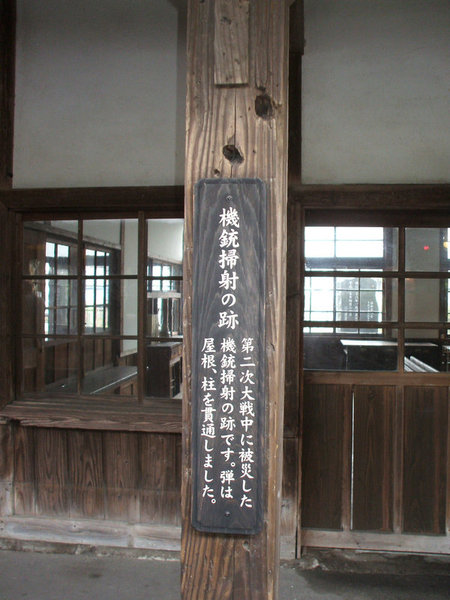 機銃掃射の跡
第二次大戦中に被災した
機銃掃射の跡です。弾は
屋根、柱を貫通しました。